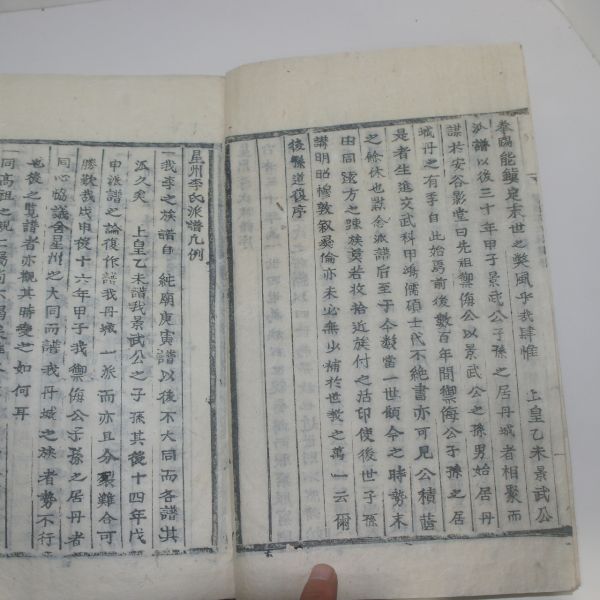 拳踢能鎮定末世之獘風乎哉肆惟　上皇乙未景武公
派譜以後三十年甲子景武公子孫之居丹城者相聚而
謀於安谷影堂曰先祖禦侮公以景武公之孫男始居丹
城丹之有李自此始焉前後數百年間禦侮公子孫之居
是者生進文武科甲鴻儒碩士代不絶書亦可見公積蔭
之餘休也玆余派譜后至于今數當一世顧今之時勢未
由同弦方之竦族莫若收拾近族付之活印使後世子孫
講明昭穆敦叙彛倫亦未必無少補於世敎之萬一云爾
後孫道復序
星州李氏派譜凡例
一我李之族譜自　純廟庚寅譜以後不大同而各譜其
派久矣　上皇乙未譜我景武公之子孫其後十四年戊
申派譜之論復作譜我丹城一派而亦且分裂難合可
勝歎哉戊申後十六年甲子我禦侮公子孫之居丹者
同心協議全星州之大同而譜我丹城之族者勢不行
也後之覽譜者亦觀其時變之如何耳
一同高祖之親